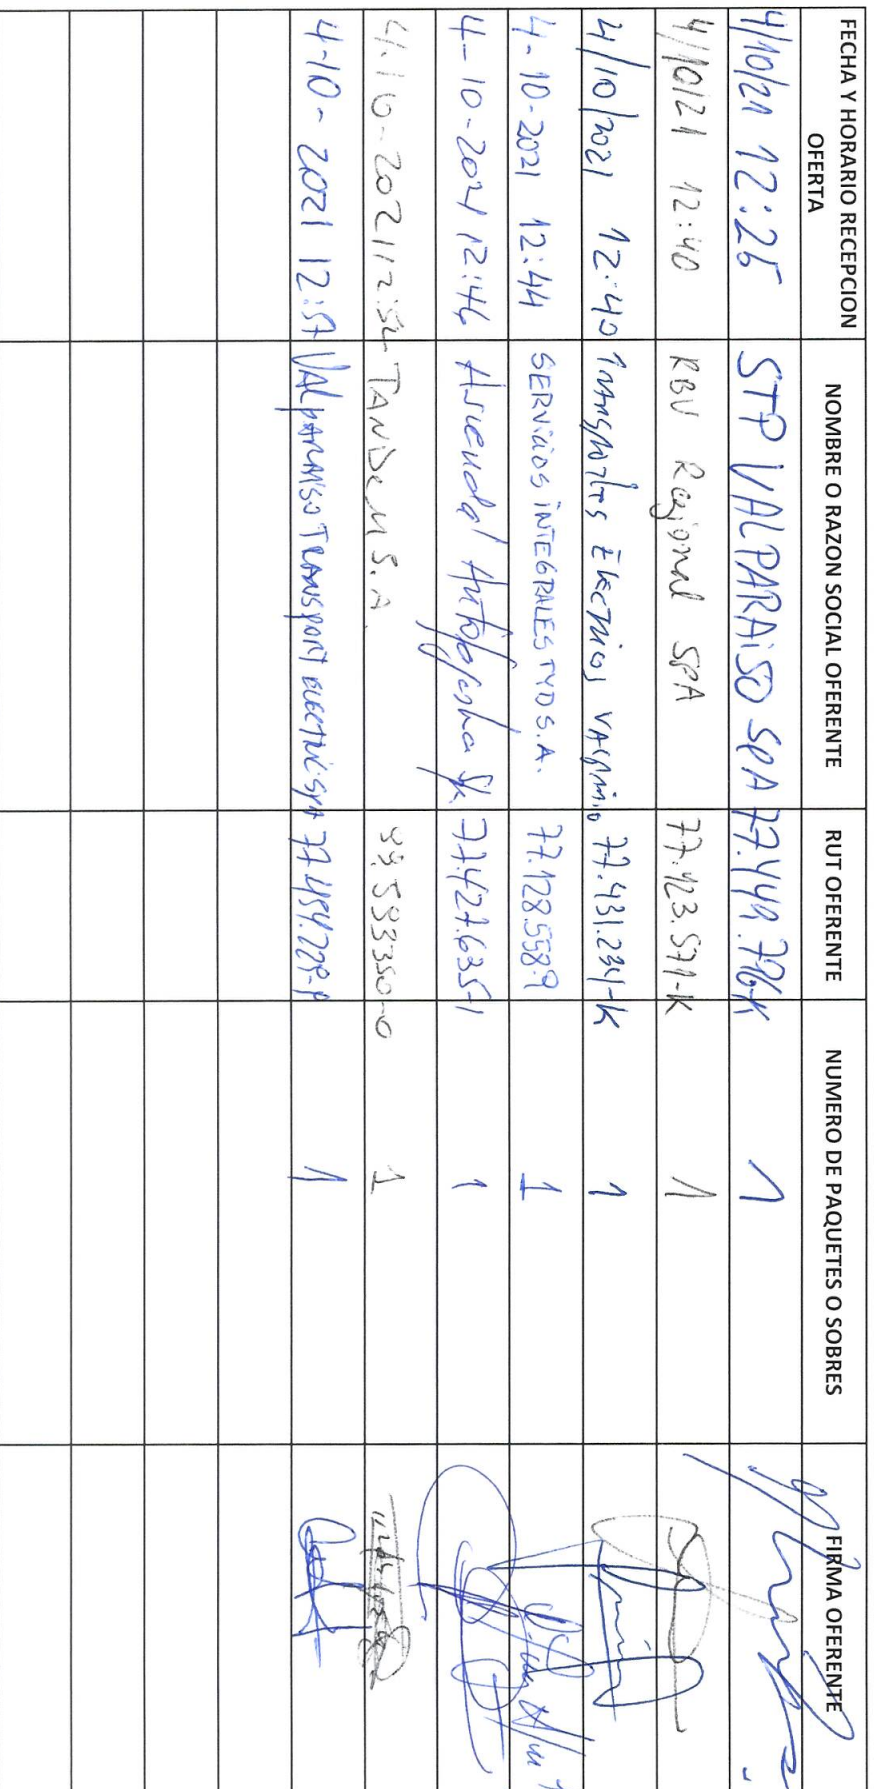 FECHA Y HORARIO RECEPCION OFERTA NOMBRE O RAZON SOCIAL OFERENTE RUT OFERENTE NUMERO DE PAQUETES O SOBRES FIRMA OFERENTE
4/10/21 12:25 STP VALPARAISO SPA 77.441.796-K 1
4/10/21 12:40 RBU Regional SPA 77.123.571-K 1
4/10/2021 12:40 Transportes Electricos 77.431.234-K 1
4-10-2021 12:44 SERVICIOS INTEGRALES TYD S.A. 77.128.558-9 1
4-10-2021 12:46 77.427.635-1 1
4-10-2021 12:52 TANDEM S.A. 1
4-10-2021 12:57 VALPARAISO TRANSPORT ELECTRIC SPA 1